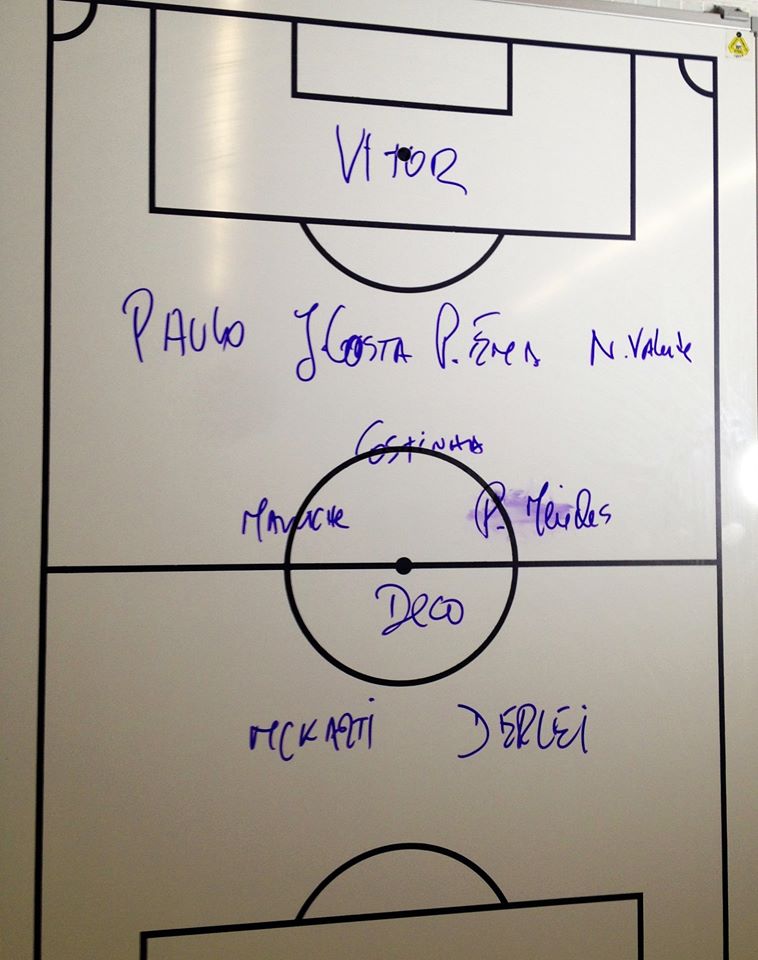 VITOR
PAULO J COSTA P. EMA N. Valente
Costinha
Maniche P. Mendes
Deco
MCKARTI DERLEI